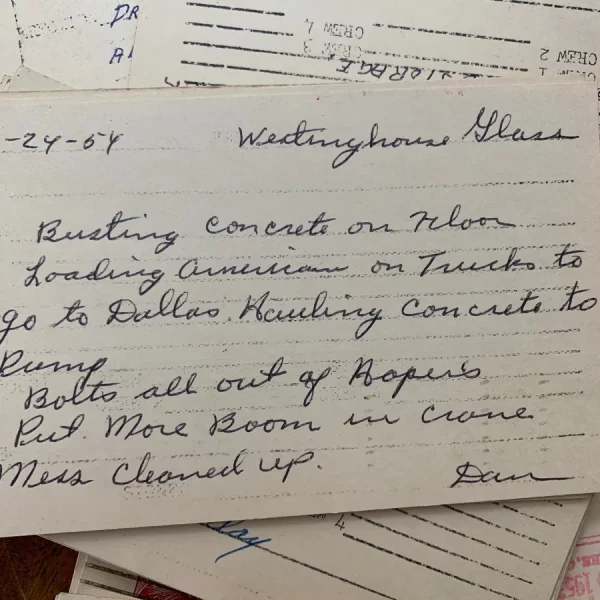 DR
A
CREW 4
CREW 3
CREW 2
CREW 1
STORAGE
-24-54 Westinghouse Glass
Busting concrete on Floor
Loading American on Trucks to
go to Dallas. Hauling concrete to
Dump
Bolts all out of Hopers
Put More Boom in Crane
Mess cleaned up.
Dan
4
day
195